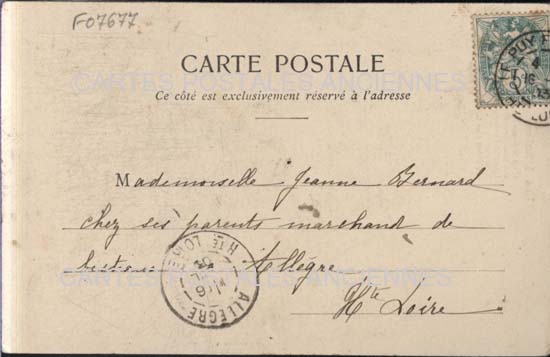 F07677
CARTE POSTALE
CARTES POSTALES ANCIENNES
Ce côté est exclusivement réservé à l'adresse
LE PUY
Mademoiselle Jeanne Bernard
chez ses parents marchand de
Allégre
CARTES POSTALES ANCIENNES
Hte Loire
ALLEGRE
HTE LOIRE